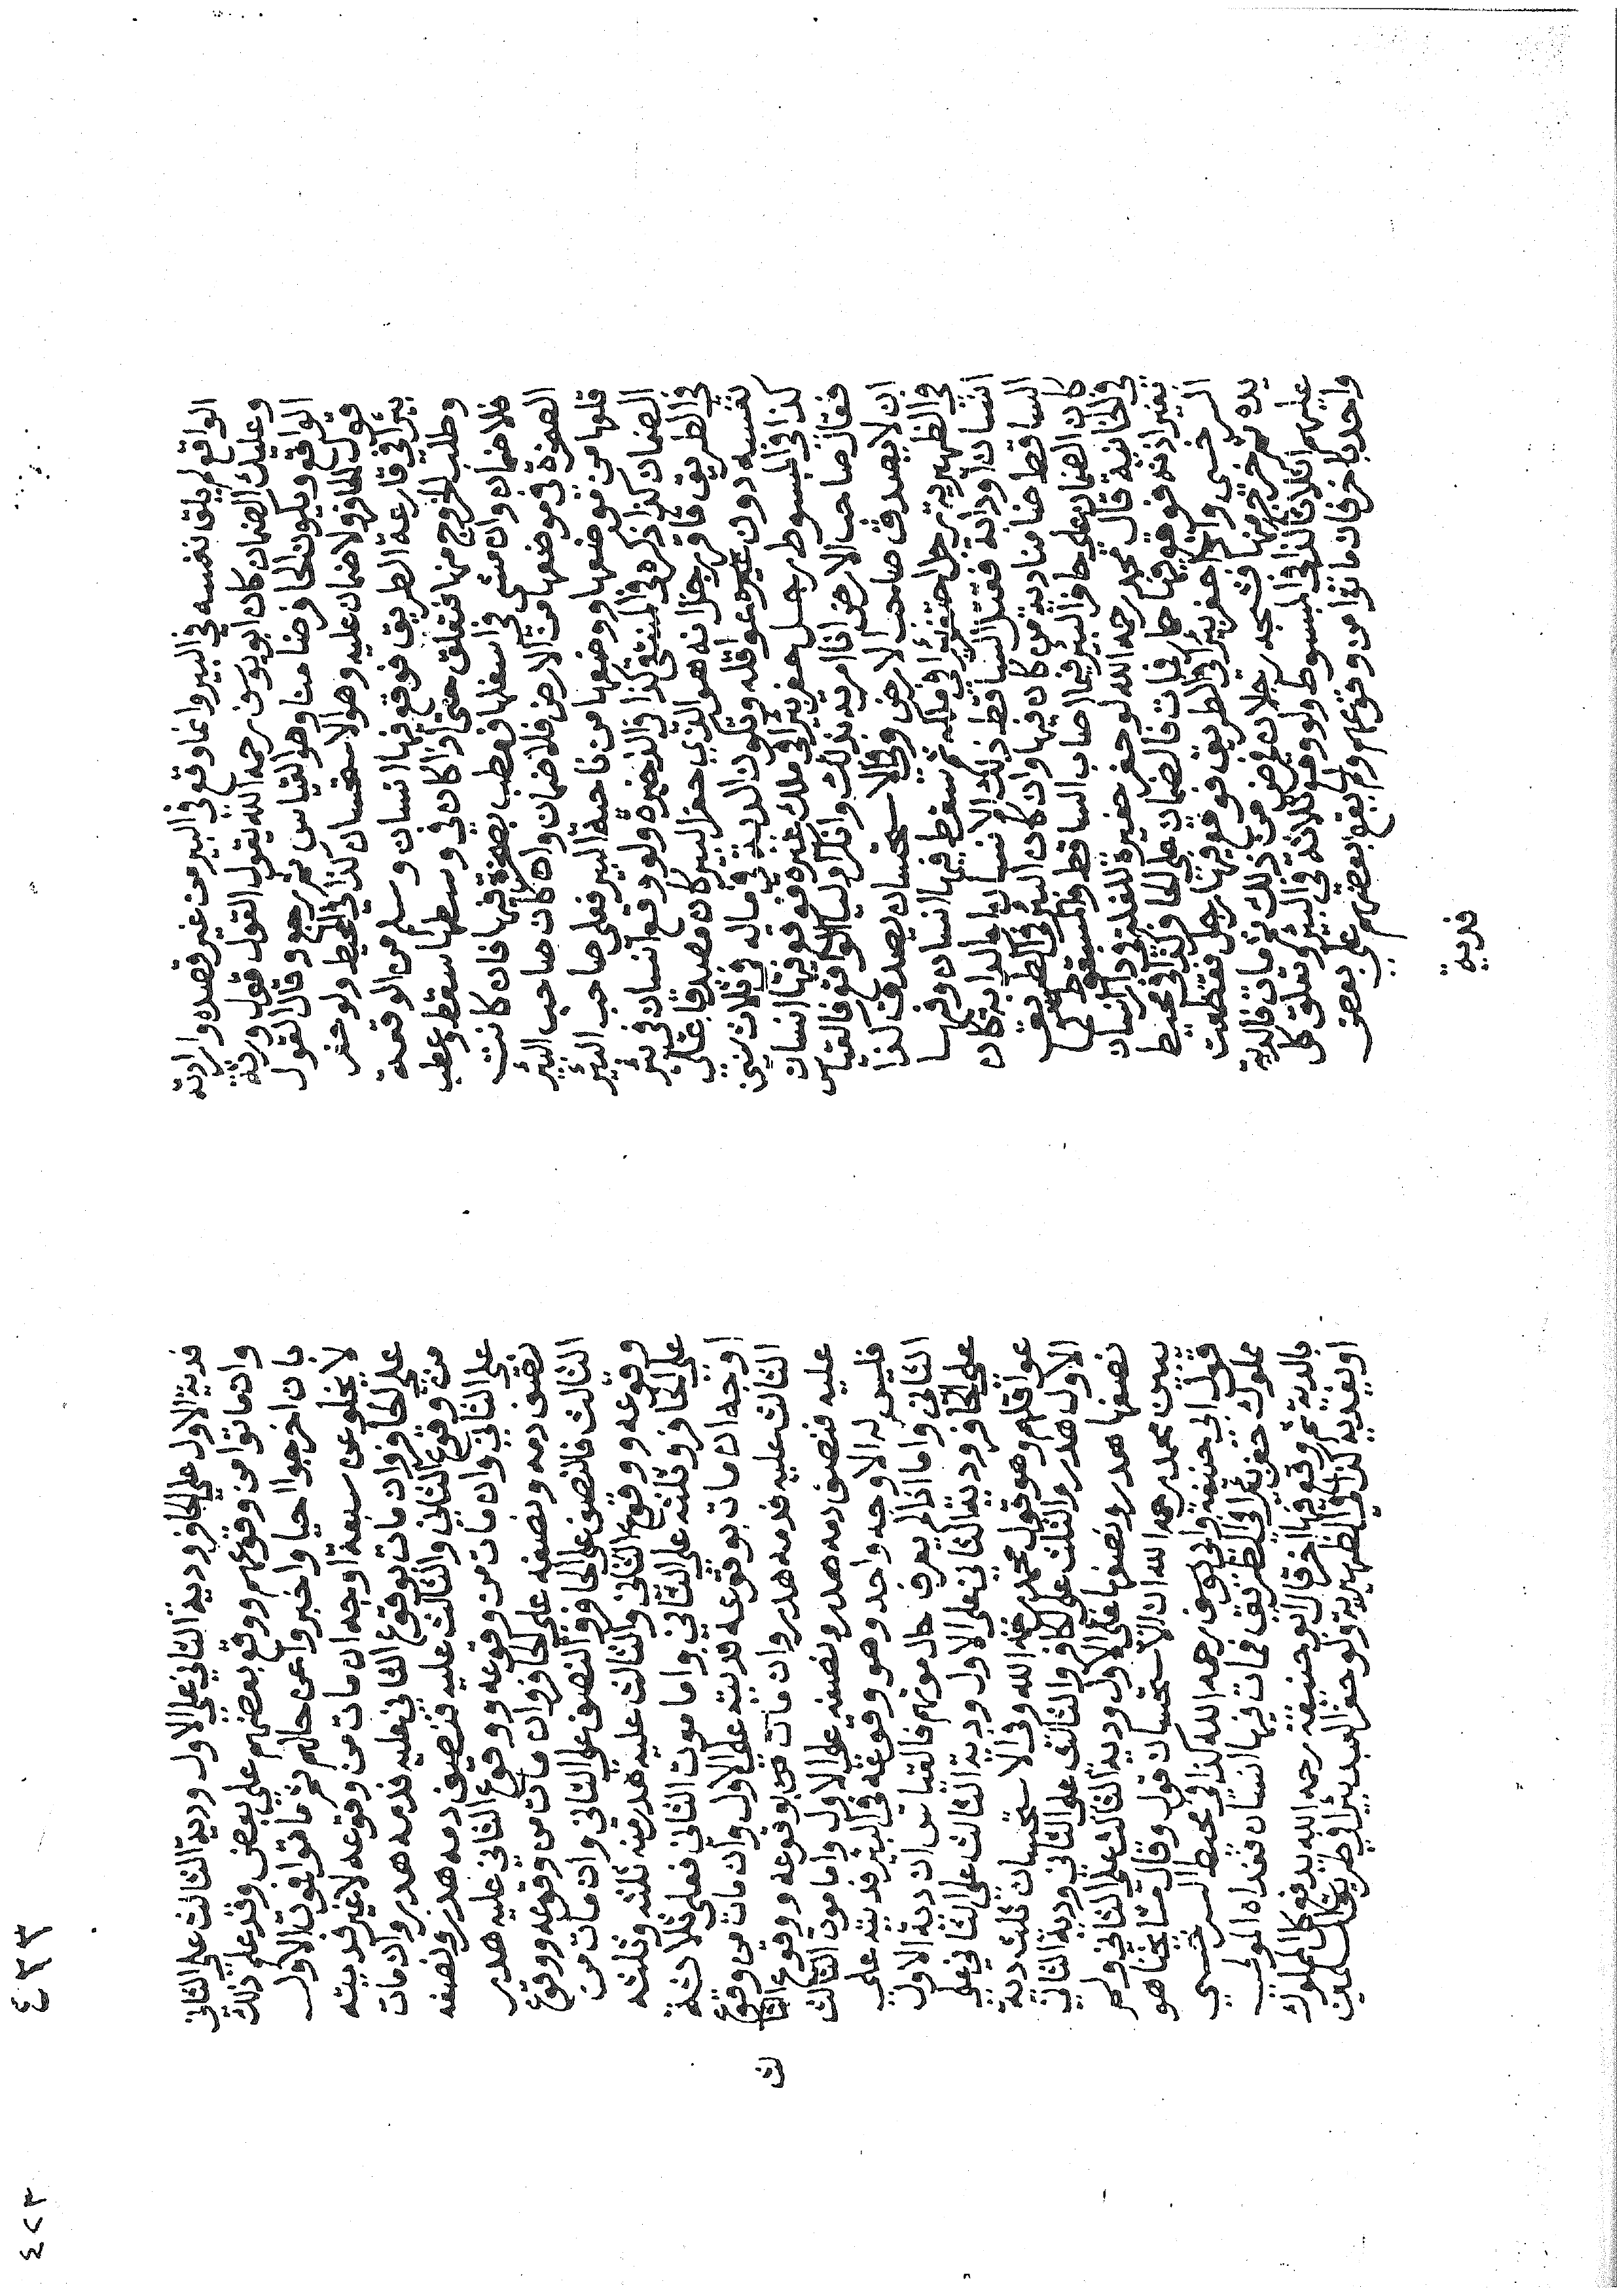 الواقع لم يلق نفسه في البير وانما وقع في البير من غير قصده وارادته
وعليك الضمان كان ابو يوسف رحمه الله يقول القول قول ورثة
الواقع ويكون الحافر ضامنا وهو القياس ثم رجع وقال القول
قول الحافر ولا ضمان عليه وهو الاستحسان كذا في المحيط ولو حفر
بيرا في قارعة الطريق فوقع فيها انسان وسلم من الوقعة
وطلب الخروج منها فتعلق حتى اذا كان في وسطها سقط وعطب
فلا ضمان وان مشى في اسفلها فعطب بصخرة فيها فان كانت
الصخرة في موضعها من الارض فلا ضمان وان كان صاحب البئر
قلعها من موضعها ووضعها من ناحية البير فعلى صاحب البئر
الضمان كذا ذكره في المنتقى كذا في الذخيرة ولو وقع انسان في بئر
في الطريق فاقر رجل انه هو الذي حفر البير كان مصدقا على
نفسه دون غيره عواقله وتكون الدية في ماله في ثلاث سنين
كذا في المبسوط رجل حفر بئرا في ملك غيره فوقع فيها انسان
فقال صاحب الارض انا امرته بذلك وانكر اولياء الواقع فالقياس
ان لا يصدق صاحب الارض وفي الاستحسان يصدق كذا
في الظهيرية رجل احتفر بئرا في ملكه ثم سقط فيها انسان وفيها
انسان او دابة فقتل الساقط ذلك الانسان او الدابة كان
الساقط ضامنا دية من كان فيها وان كان البئر في الطريق
كان الضمان على حافر البئر فيما اصاب الساقط والمسقوط عليه
في الخانية قال محمد رحمه الله لو حفر حفيرة للغلة في دار انسان
بغير اذنه فوقع فيها حمار فمات فالضمان على الحافر كذا في محيط
السرخسي واذا حفر بئرا في الطريق فوقع فيها رجل فقطعت
يده ثم خرج منها فشجه رجلان فمرض من ذلك ثم مات فالدية
عليهم اثلاثا كذا في المبسوط ولو وقع ثلاثة في البئر وتعلق كل
واحد باخر فان ماتوا من وقوعهم ولم يقع بعضهم على بعض
فدية
فدية الاول على الحافر ودية الثاني على الاول ودية الثالث على الثاني
وان ماتوا من وقوعهم ووقع بعضهم على بعض وقد علم ذلك
بان اخرجوا احيا واخبروا عن حالهم ثم ماتوا فموت الاول
لا يخلو عن سبعة اوجه ان مات من وقوعه لا غير فديته
على الحافر وان مات بوقوع الثاني عليه فدمه هدر وان مات
من وقوع الثاني والثالث عليه فنصف دمه هدر ونصفه
على الثاني وان مات من وقوعه ووقوع الثاني عليه هدر
نصف دمه ونصفه على الحافر وان مات من وقوعه ووقوع
الثالث فالنصف على الحافر والنصف على الثاني وان مات من
وقوعه ووقوع الثاني والثالث عليه هدر منه ثلثه وثلثه
على الحافر وثلثه على الثاني واما موت الثاني فعلى ثلاثة
اوجه ان مات بوقوعه فديته على الاول وان مات من وقوع
الثالث عليه فدمه هدر وان مات من بوقوعه ووقوع الثا
ث
عليه فنصف دمه هدر ونصفه على الاول واما موت الثالث
فليس له الا وجه واحد وهو وقوعه في البئر فديته على
الثاني واما اذا لم يعرف حال موتهم فالقياس ان دية الاول
على الحافر ودية الثاني على الاول ودية الثالث على الثاني على
عواقلهم وهو قول محمد رحمه الله وفي الاستحسان ثلث دية
الاول هدر والثلث على الحافر والثالث على الثاني ودية الثاني
نصفها هدر ونصفها على الاول ودية الثالث على الثاني ولم
يبين محمد رحمه الله ان الاستحسان قول وقال مشايخنا هو
قول ابي حنيفة وابي يوسف رحمه الله كذا في محيط السرخسي
مملوك حفر بئرا في الطريق فمات فيها انسان ففداه المولى
بالدية ثم وقع فيها اخر قال ابو حنيفة رحمه الله يدفع كل المملوك
او يفديه كذا في الظهيرية ولو حفر العبد بيرا في طريق المسلمين
٤٣٣
٤٢٣